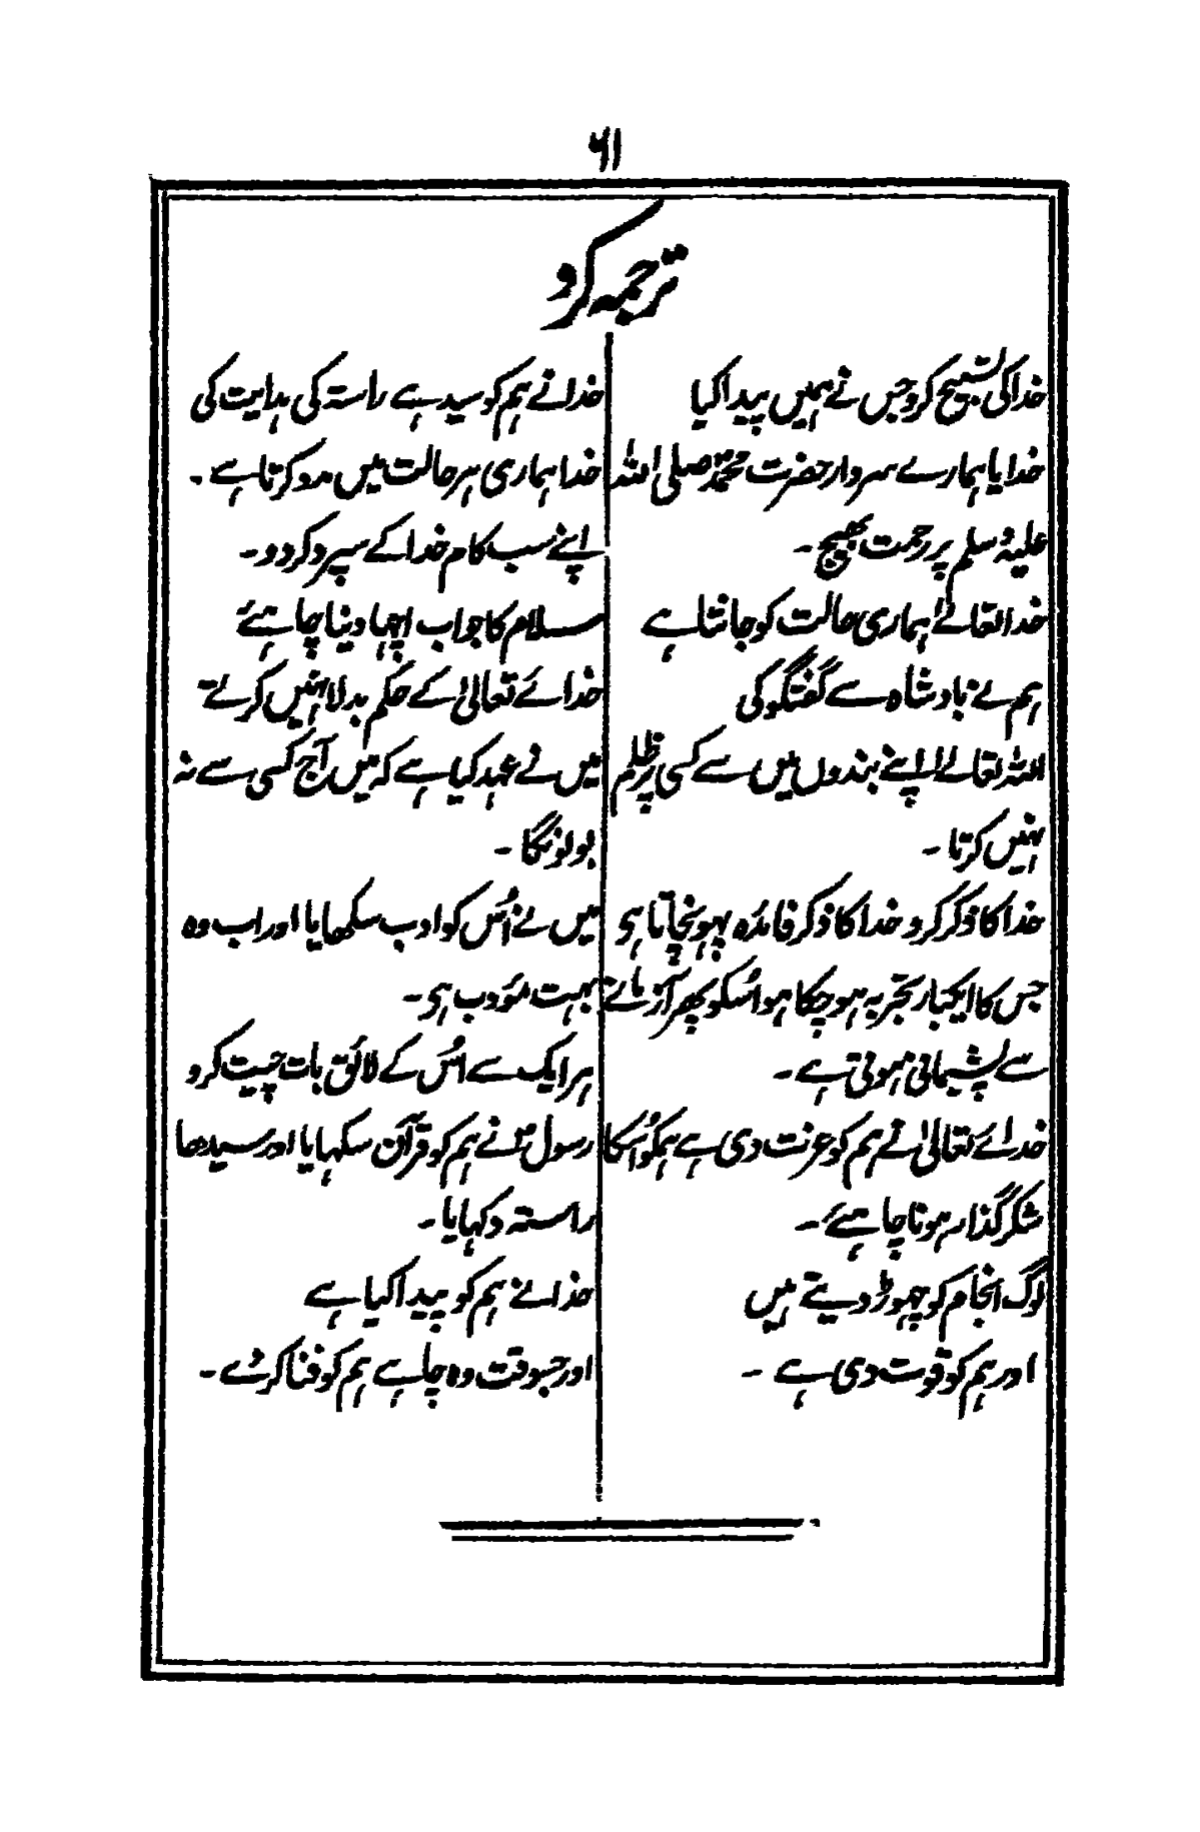 ۶۱
ترجمہ کرو
خدا کی تسبیح کرو جس نے ہمیں پیدا کیا
خدایا ہمارے سردار حضرت محمدؐ صلی اللہ
علیہ وسلم پر رحمت بھیج -
خدا تعالےٰ ہماری حالت کو جانتا ہے
ہم نے بادشاہ سے گفتگو کی
اللہ تعالےٰ اپنے بندوں میں سے کسی پر ظلم
نہیں کرتا -
خدا کا ذکر کرو خدا کا ذکر فائدہ پہونچاتا ہی
جس کا ایکبار تجربہ ہو چکا ہو اُسکو پھر آزمانے
سے پشیمانی ہوتی ہے -
خدائے تعالیٰ نے ہم کو عزت دی ہے ہمکو اُسکا
شکر گذار ہونا چاہئے -
لوگ انجام کو چھوڑ دیتے ہیں
اور ہم کو قوت دی ہے -
خدا نے ہم کو سیدہے راستہ کی ہدایت کی
خدا ہماری ہر حالت میں مدد کرتا ہے -
اپنے سب کام خدا کے سپرد کردو -
سلام کا جواب اچہا دینا چاہئے
خدائے تعالیٰ کے حکم بدلا نہیں کرتے
میں نے عہد کیا ہے کہ میں آج کسی سے نہ
بولونگا -
میں نے اُس کو ادب سکھایا اور اب وہ
بہت مؤدب ہی -
ہر ایک سے اُس کے لائق بات چیت کرو
رسولؐ نے ہم کو قرآن سکہایا اور سیدھا
راستہ دکہایا -
خدا نے ہم کو پیدا کیا ہے
اور جسوقت وہ چاہے ہم کو فنا کردے -